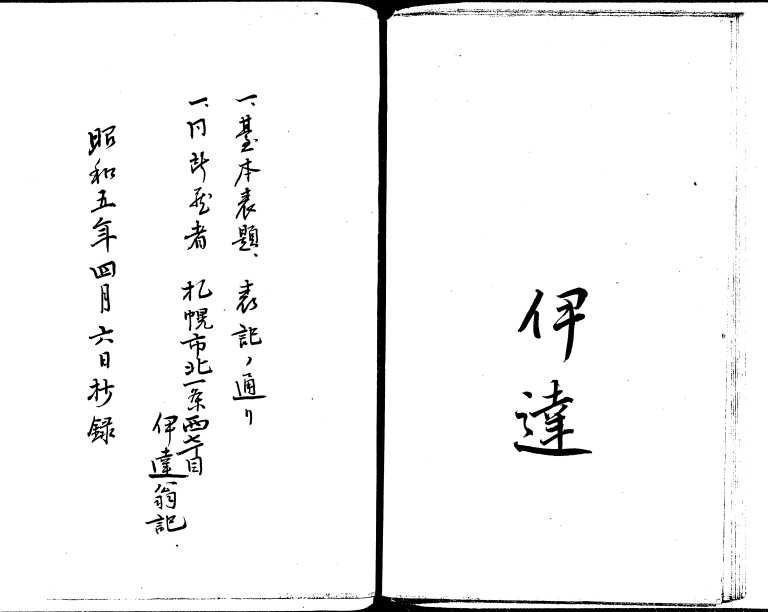 伊達
一、臺本表題、表記ノ通リ
一、同所蔵者 札幌市北一条西七丁目
伊達翁記
昭和五年四月六日抄録